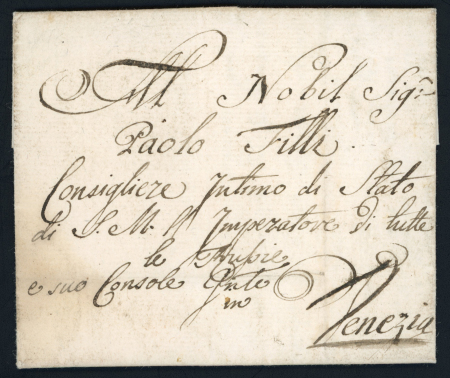 All Nobil Sigr:
Paolo Filli
Consigliere Intimo di Stato
di S. M. l' Imperatore di tutte
le Rusie
e suo Console Gnle
in Venezia